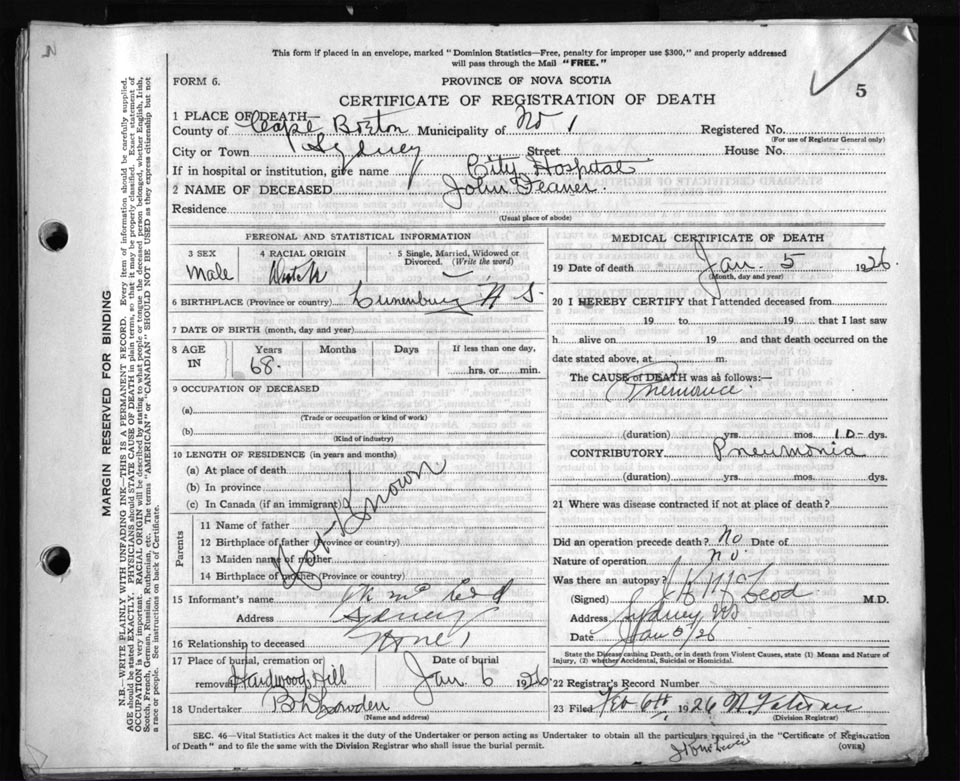 This form if placed in an envelope, marked "Dominion Statistics—Free, penalty for improper use $300," and properly addressed
will pass through the Mail "FREE."
FORM 6.
PROVINCE OF NOVA SCOTIA
5
CERTIFICATE OF REGISTRATION OF DEATH
1 PLACE OF DEATH—
County of Cape Breton Municipality of No 1 Registered No.
(For use of Registrar General only)
City or Town Sydney Street House No.
If in hospital or institution, give name City Hospital
2 NAME OF DECEASED John Deaner
Residence
(Usual place of abode)
PERSONAL AND STATISTICAL INFORMATION
3 SEX
male
4 RACIAL ORIGIN
Dutch
5 Single, Married, Widowed or Divorced. (Write the word)
6 BIRTHPLACE (Province or country) Lunenburg N S.
7 DATE OF BIRTH (month, day and year)
8 AGE IN
Years
68
Months
Days
If less than one day,
hrs. or min.
9 OCCUPATION OF DECEASED
(a)
(Trade or occupation or kind of work)
(b)
(Kind of industry)
10 LENGTH OF RESIDENCE (in years and months)
(a) At place of death
(b) In province
(c) In Canada (if an immigrant)
Not Known
Parents
11 Name of father
12 Birthplace of father (Province or country)
13 Maiden name of mother
14 Birthplace of mother (Province or country)
15 Informant's name
Address Sydney
16 Relationship to deceased None
17 Place of burial, cremation or removal Hardwood Hill
Date of burial
Jan 6 1926
18 Undertaker
(Name and address)
MEDICAL CERTIFICATE OF DEATH
19 Date of death Jan. 5 1926.
(Month, day and year)
20 I HEREBY CERTIFY that I attended deceased from
19 to 19 that I last saw
h alive on 19 and that death occurred on the
date stated above, at m.
The CAUSE of DEATH was as follows:—
(duration) yrs. mos. 10 dys.
CONTRIBUTORY Pneumonia
(duration) yrs. mos. dys.
21 Where was disease contracted if not at place of death?
Did an operation precede death? No Date of
Nature of operation no.
Was there an autopsy?
(Signed) McLeod M.D.
Address Sydney NS
Date Jan 5/26
State the Disease causing Death, or in death from Violent Causes, state (1) Means and Nature of
Injury, (2) whether Accidental, Suicidal or Homicidal.
22 Registrar's Record Number
23 Filed Feb 6th, 1926
(Division Registrar)
SEC. 46—Vital Statistics Act makes it the duty of the Undertaker or person acting as Undertaker to obtain all the particulars required in the "Certificate of Registration
of Death" and to file the same with the Division Registrar who shall issue the burial permit.
(OVER)
MARGIN RESERVED FOR BINDING
N.B.—WRITE PLAINLY WITH UNFADING INK—THIS IS A PERMANENT RECORD. Every item of information should be carefully supplied.
AGE should be stated EXACTLY. PHYSICIANS should STATE CAUSE OF DEATH in plain terms, so that it may be properly classified. Exact statement of
OCCUPATION is very important. RACIAL ORIGIN will be described by stating to what people or tongue the deceased person belonged, whether English, Irish,
Scotch, French, German, Russian, Ruthenian, etc. The terms "AMERICAN" or "CANADIAN" SHOULD NOT BE USED as they express citizenship but not
a race or people. See instructions on back of Certificate.